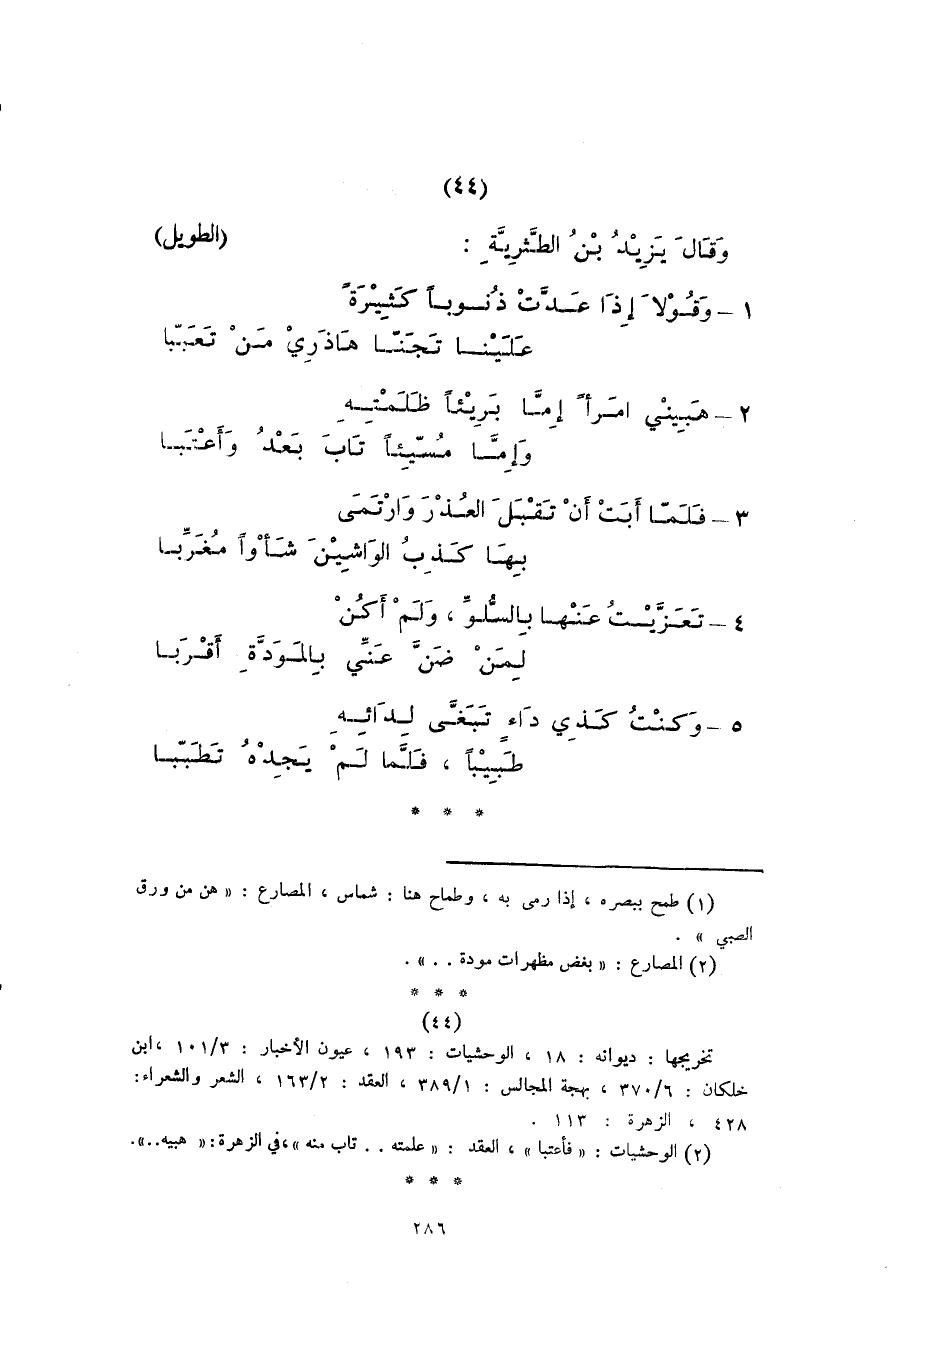 (٤٤)
وَقَالَ يَزِيْدُ بْنُ الطَّثْرِيَّةِ : (الطويل)
١ ـ وَقُوْلاَ إِذَا عَدَّتْ ذُنُوباً كَثِيْرَةً
عَلَيْنَا تَجَنَّا هَاذَرِيْ مَنْ تَعَبَّبَا
٢ ـ هَبِيْنِي امرَأً إِمَّا بَرِيْئاً ظَلَمْتِهِ
وَإِمَّا مُسِّيْئاً تَابَ بَعْدُ وَأَعْتَبَا
٣ ـ فَلَمّا أَبَتْ أَنْ تَقْبَلَ العُذْرَ وَارْتَمَى
بِهَا كَذِبُ الوَاشِيْنَ شَأْواً مُغَرِّبا
٤ ـ تَعَزَّيْتُ عَنْها بِالسُّلُوِّ ، وَلَمْ أَكُنْ
لِمَنْ ضَنَّ عَنِّي بِالمَوَدَّةِ أَقْرَبَا
٥ ـ وَكنْتُ كَذِي دَاءٍ تَبَغَّى لِدَائِهِ
طَبِيْباً ، فَلَّما لَمْ يَجِدْهُ تَطَبّبَا
* * *
(١) طمح ببصره ، إذا رمى به ، وطماح هنا : شماس ، المصارع : « هن من ورق
الصبي » .
(٢) المصارع : « بغض مظهرات مودة . . » .
* * *
(٤٤)
تخريجها : ديوانه : ١٨ ، الوحشيات : ١٩٣ ، عيون الأخبار : ١٠١/٣ ، ابن
خلكان : ٣٧٠/٦ ، بهجة المجالس : ٣٨٩/١ ، العقد : ١٦٣/٢ ، الشعر والشعراء:
٤٢٨ ، الزهرة : ١١٣ .
(٢) الوحشيات : « فأعتبا » ، العقد : « علمته . . تاب منه »،في الزهرة: « هبيه..».
* * *
٢٨٦